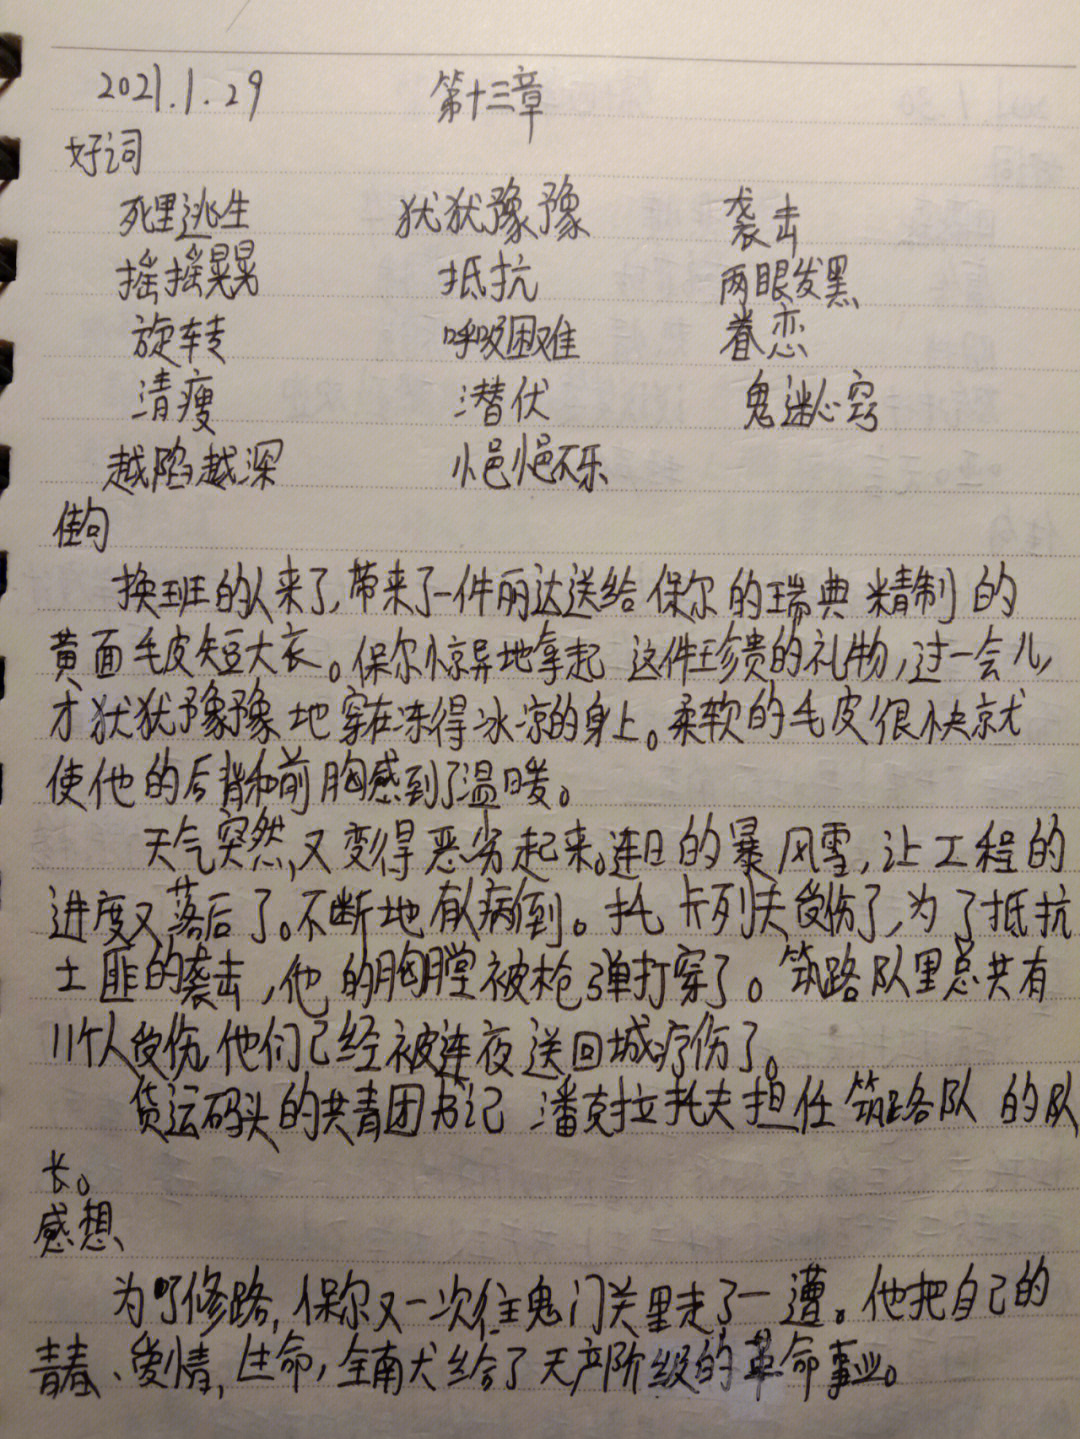 2021.1.29 第十三章
好词
死里逃生 犹犹豫豫 袭击
摇摇晃晃 抵抗 两眼发黑
旋转 呼吸困难 眷恋
清瘦 潜伏 鬼迷心窍
越陷越深 悒悒不乐
佳句
换班的人来了,带来了一件丽达送给保尔的瑞典精制的
黄面毛皮短大衣。保尔惊异地拿起这件珍贵的礼物,过一会儿,
才犹犹豫豫地穿在冻得冰凉的身上。柔软的毛皮很快就
使他的后背和前胸感到了温暖。
天气突然又变得恶劣起来。连日的暴风雪,让工程的
进度又落后了。不断地有人病倒。托卡列夫受伤了,为了抵抗
土匪的袭击,他的胸膛被枪弹打穿了。筑路队里总共有
11个人受伤,他们已经被连夜送回城疗伤了。
货运码头的共青团书记潘克拉托夫担任筑路队的队
长。
感想
为了修路,保尔又一次往鬼门关里走了一遭。他把自己的
青春、爱情,生命,全南犬给了无产阶级的革命事业。